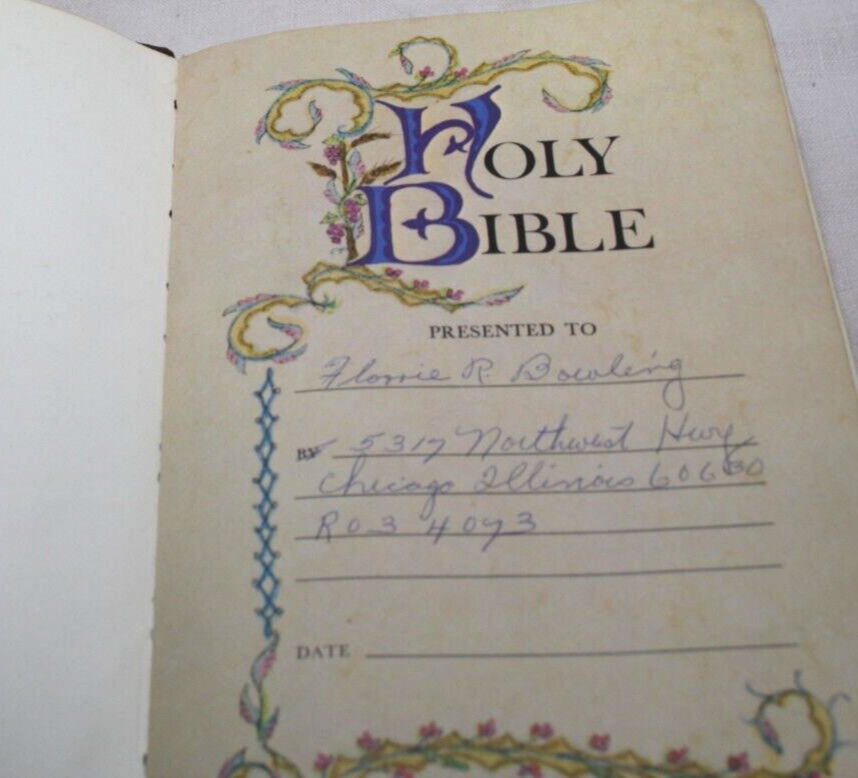 HOLY
BIBLE
PRESENTED TO
Flossie R. Bowling
BY 5317 Northwest Hwy
Chicago Illinois 60630
RO3 4073
DATE